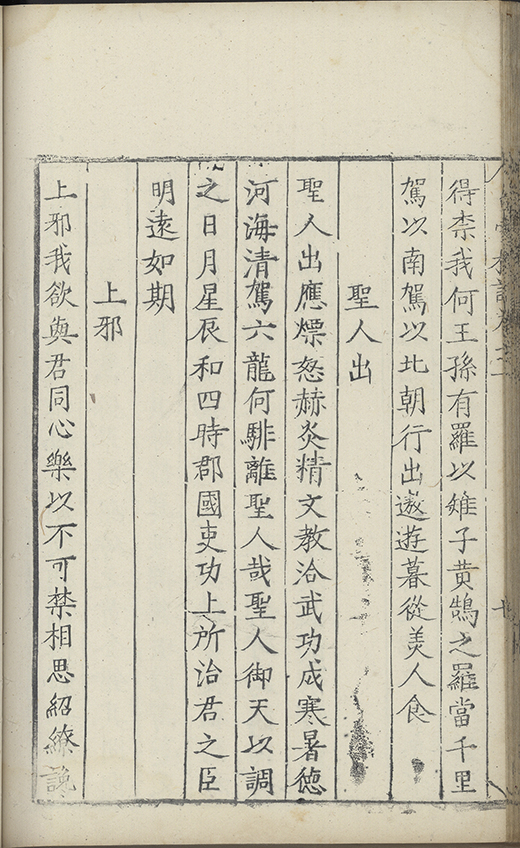 得柰我何王孫有羅以雉子黃鵠之羅當千里
駕以南駕以北朝行出遨遊暮從美人食
聖人出
聖人出應熛怒赫炎精文教洽武功成寒暑德
河海清駕六龍何騑離聖人哉聖人御天以調
之日月星辰和四時郡國吏功上所治君之臣
明遠如期
上邪
上邪我欲與君同心樂以不可禁相思紹繚